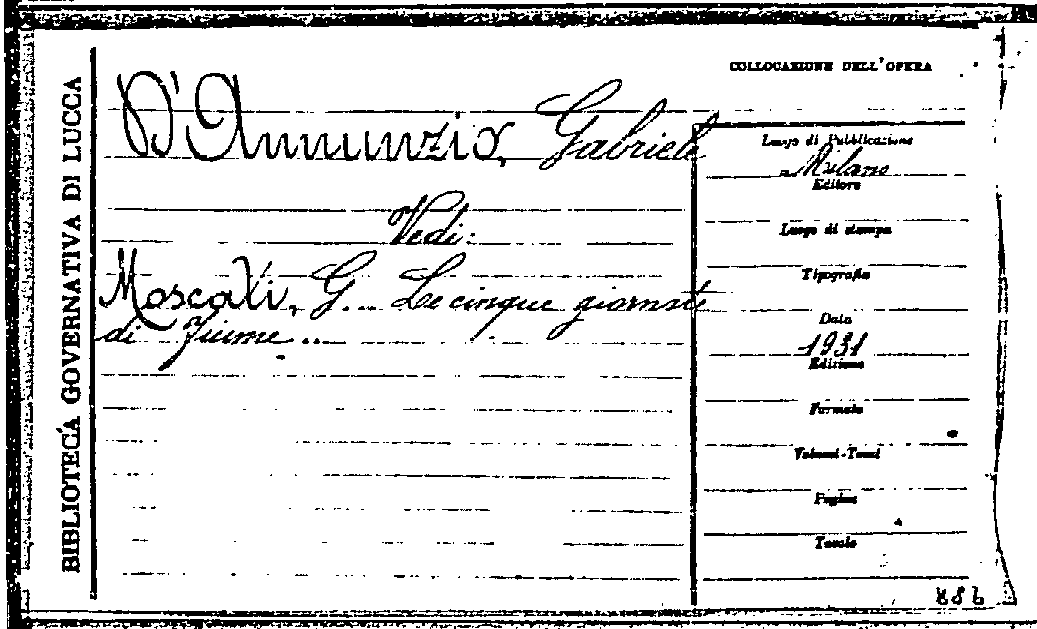 BIBLIOTECA GOVERNATIVA DI LUCCA
D'Annunzio, Gabriele
Vedi:
Moscati, G... Le cinque giornate
di Fiume...
COLLOCAZIONE DELL'OPERA
Luogo di Pubblicazione
Milano
Editore
Luogo di stampa
Tipografia
Data
1931
Edizione
Formato
Volumi-Tomi
Pagine
Tavole